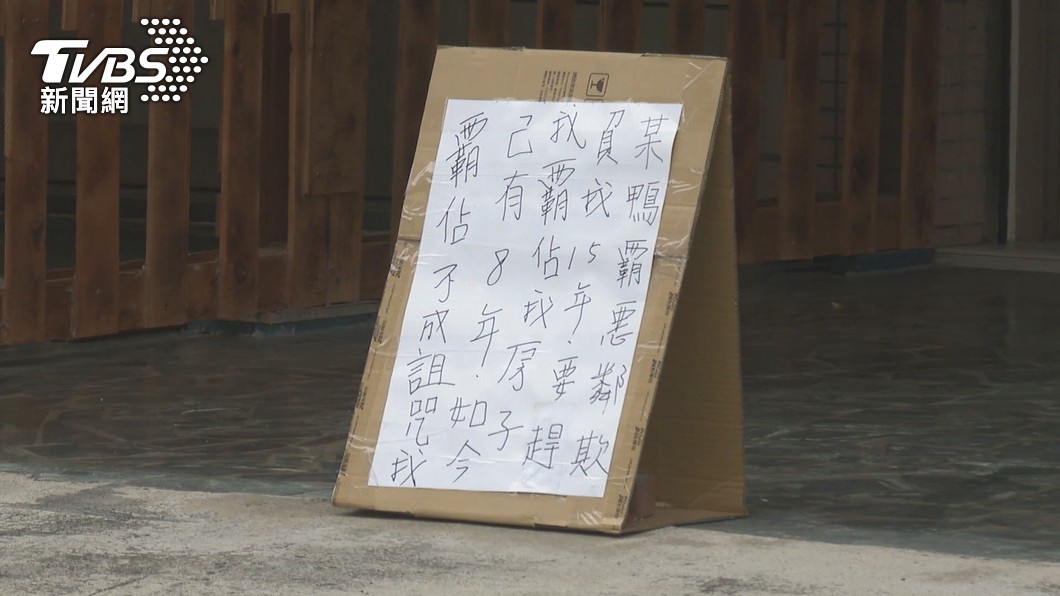 TVBS
新聞網
某鴨霸悪鄰欺
負我15年!要趕
我霸佔我厚子
己有8年!如今
霸佔不成詛咒我